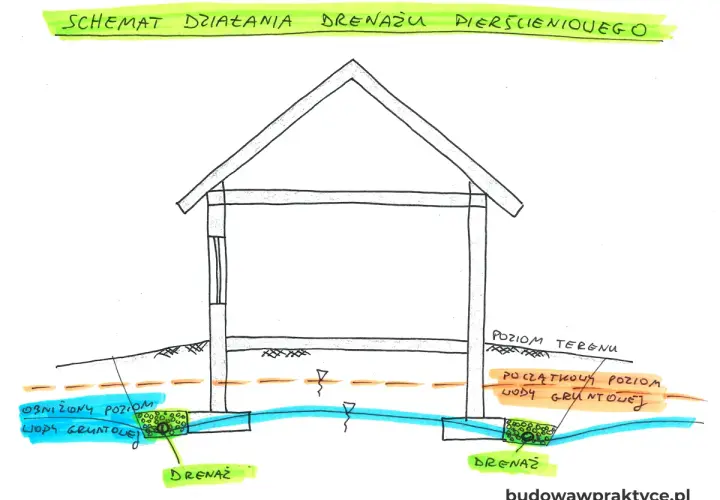 SCHEMAT DZIAŁANIA DRENAŻU PIERŚCIENIOWEGO
POZIOM TERENU
POCZĄTKOWY POZIOM
WODY GRUNTOWEJ
OBNIŻONY POZIOM
WODY GRUNTOWEJ
DRENAŻ
DRENAŻ
budowawpraktyce.pl